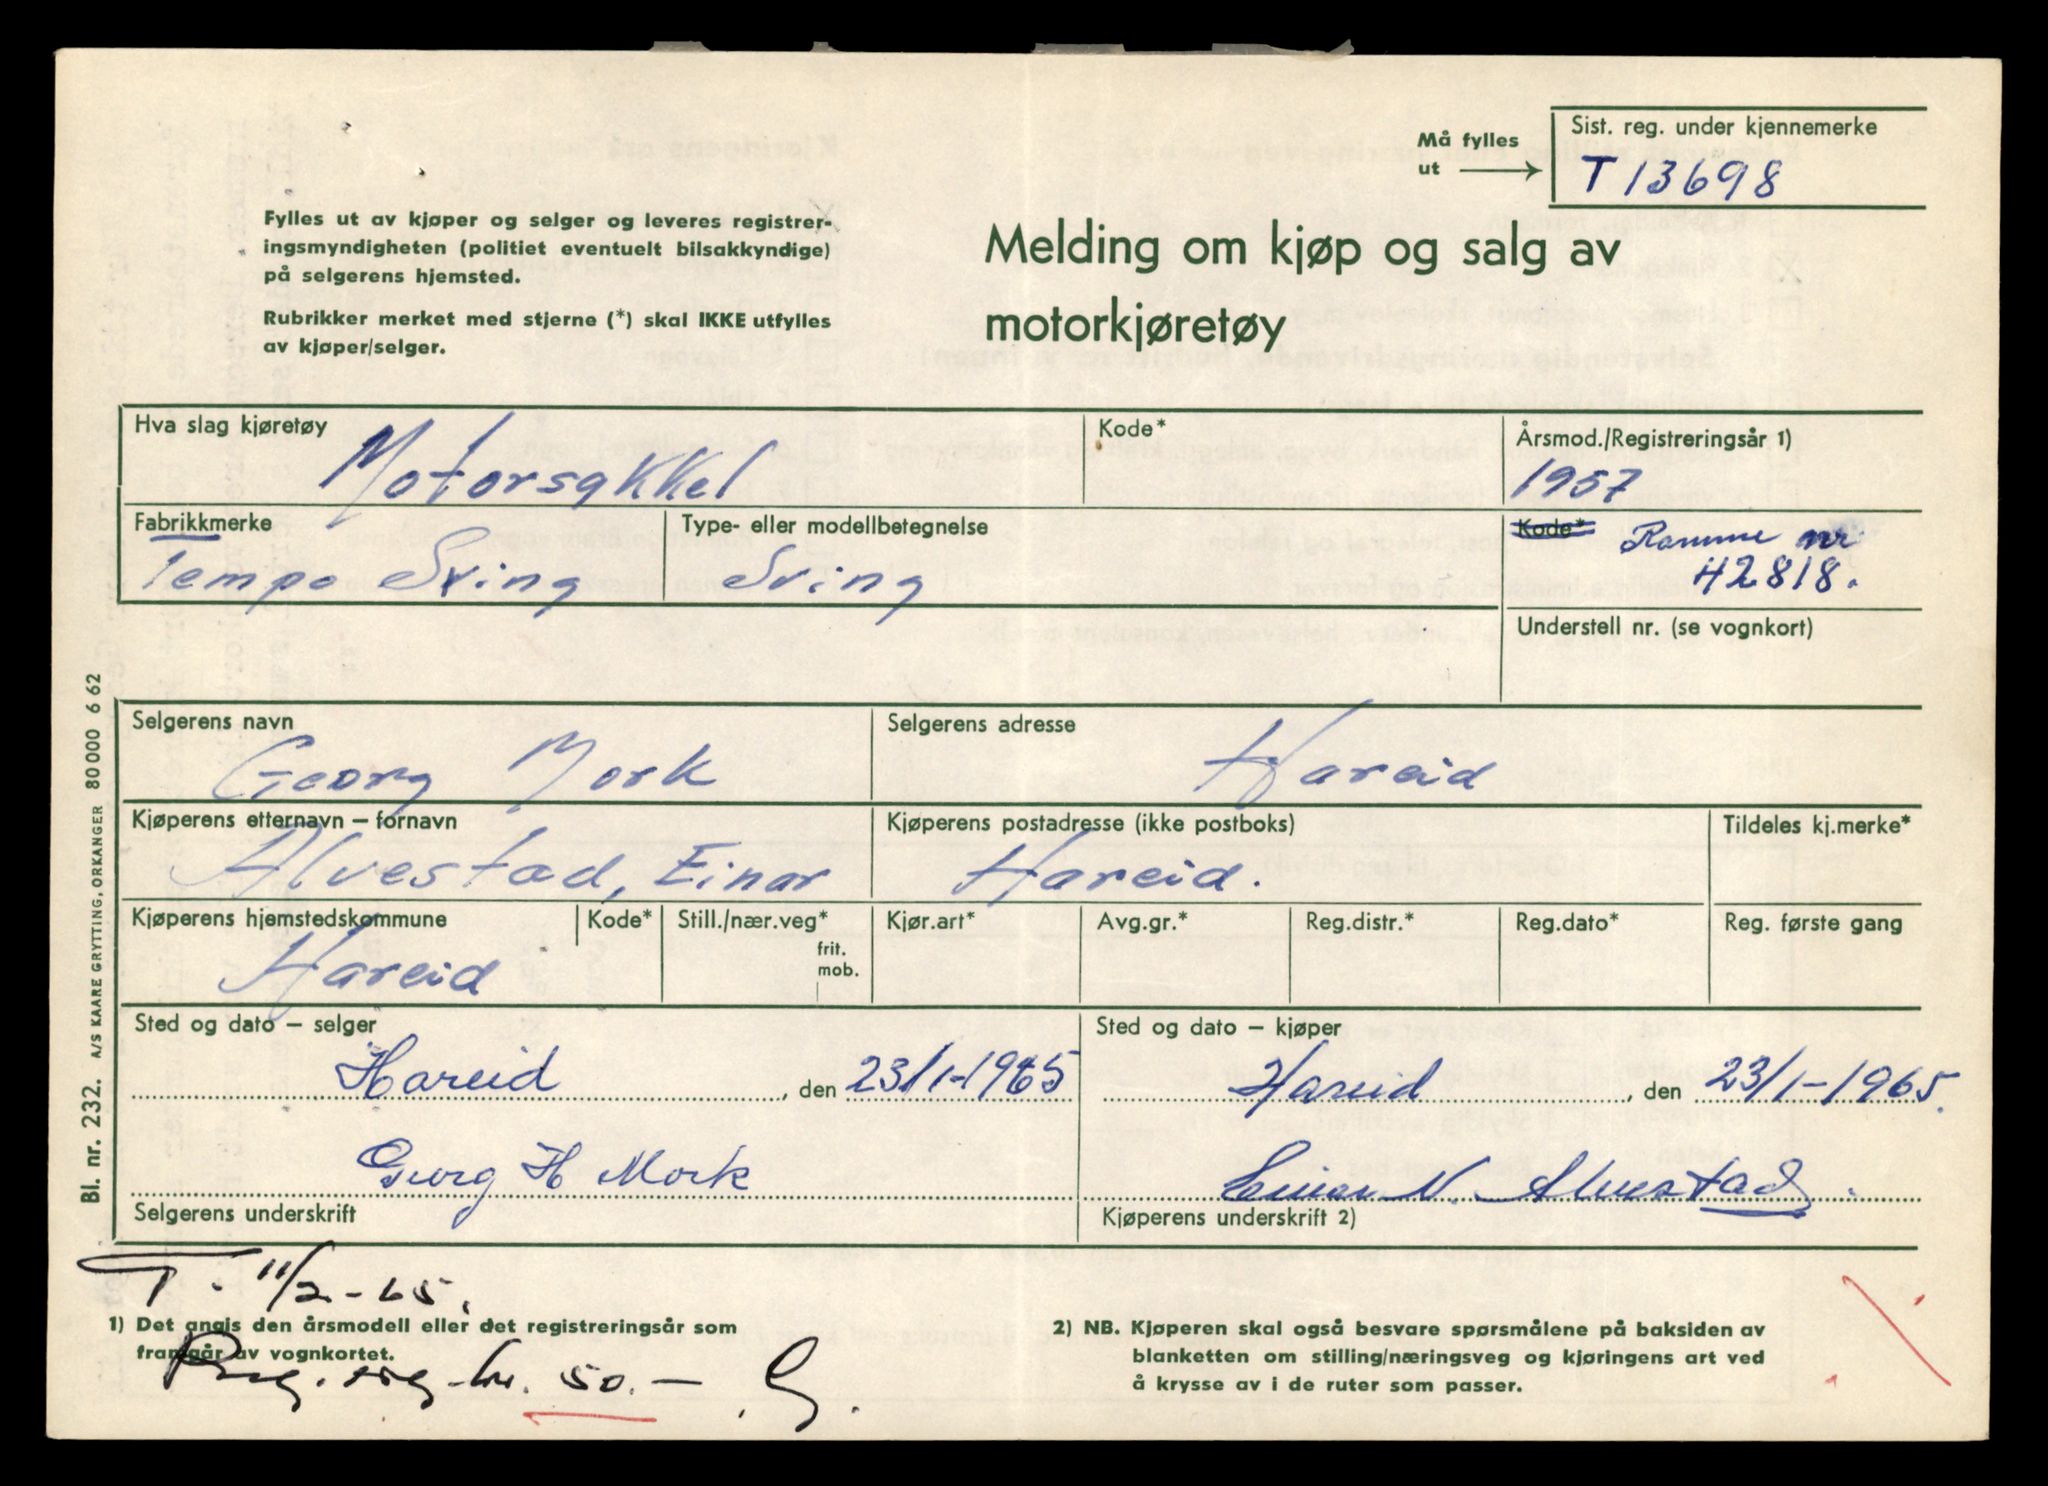 Må fylles
ut
Sist. reg. under kjennemerke
T 13698
Fylles ut av kjøper og selger og leveres registrer-
ingsmyndigheten (politiet eventuelt bilsakkyndige)
på selgerens hjemsted.
Rubrikker merket med stjerne (*) skal IKKE utfylles
av kjøper/selger.
Melding om kjøp og salg av
motorkjøretøy
Hva slag kjøretøy
Motorsykkel
Kode*
Årsmod./Registreringsår 1)
1957
Fabrikkmerke
Tempo Sving
Type- eller modellbetegnelse
Sving
Kode*
Ramme nr
42818.
Understell nr. (se vognkort)
Selgerens navn
Georg Mork
Selgerens adresse
Hareid
Kjøperens etternavn – fornavn
Alvestad, Einar
Kjøperens postadresse (ikke postboks)
Hareid.
Tildeles kj.merke*
Kjøperens hjemstedskommune
Hareid
Kode*
Still./nær.veg*
frit.
mob.
Kjør.art*
Avg.gr.*
Reg.distr.*
Reg.dato*
Reg. første gang
Sted og dato – selger
Hareid, den 23/1-1965
Sted og dato – kjøper
Hareid, den 23/1-1965.
Georg H Mork
Selgerens underskrift
Einar N. Alvestad.
Kjøperens underskrift 2)
T. 11/2-65.
1) Det angis den årsmodell eller det registreringsår som
framgår av vognkortet.
50.-
2) NB. Kjøperen skal også besvare spørsmålene på baksiden av
blanketten om stilling/næringsveg og kjøringens art ved
å krysse av i de ruter som passer.
Bl. nr. 232. A/S KAARE GRYTTING, ORKANGER 80000 6 62